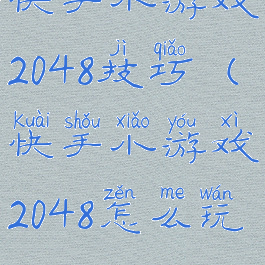 快手小游戏
jì qiǎo
2048技巧（
kuài shǒu xiǎo yóu xì
快手小游戏
zěn me wán
2048怎么玩